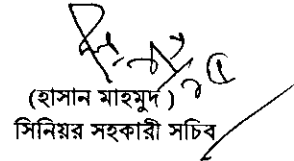 (হাসান মাহমুদ )
সিনিয়র সহকারী সচিব